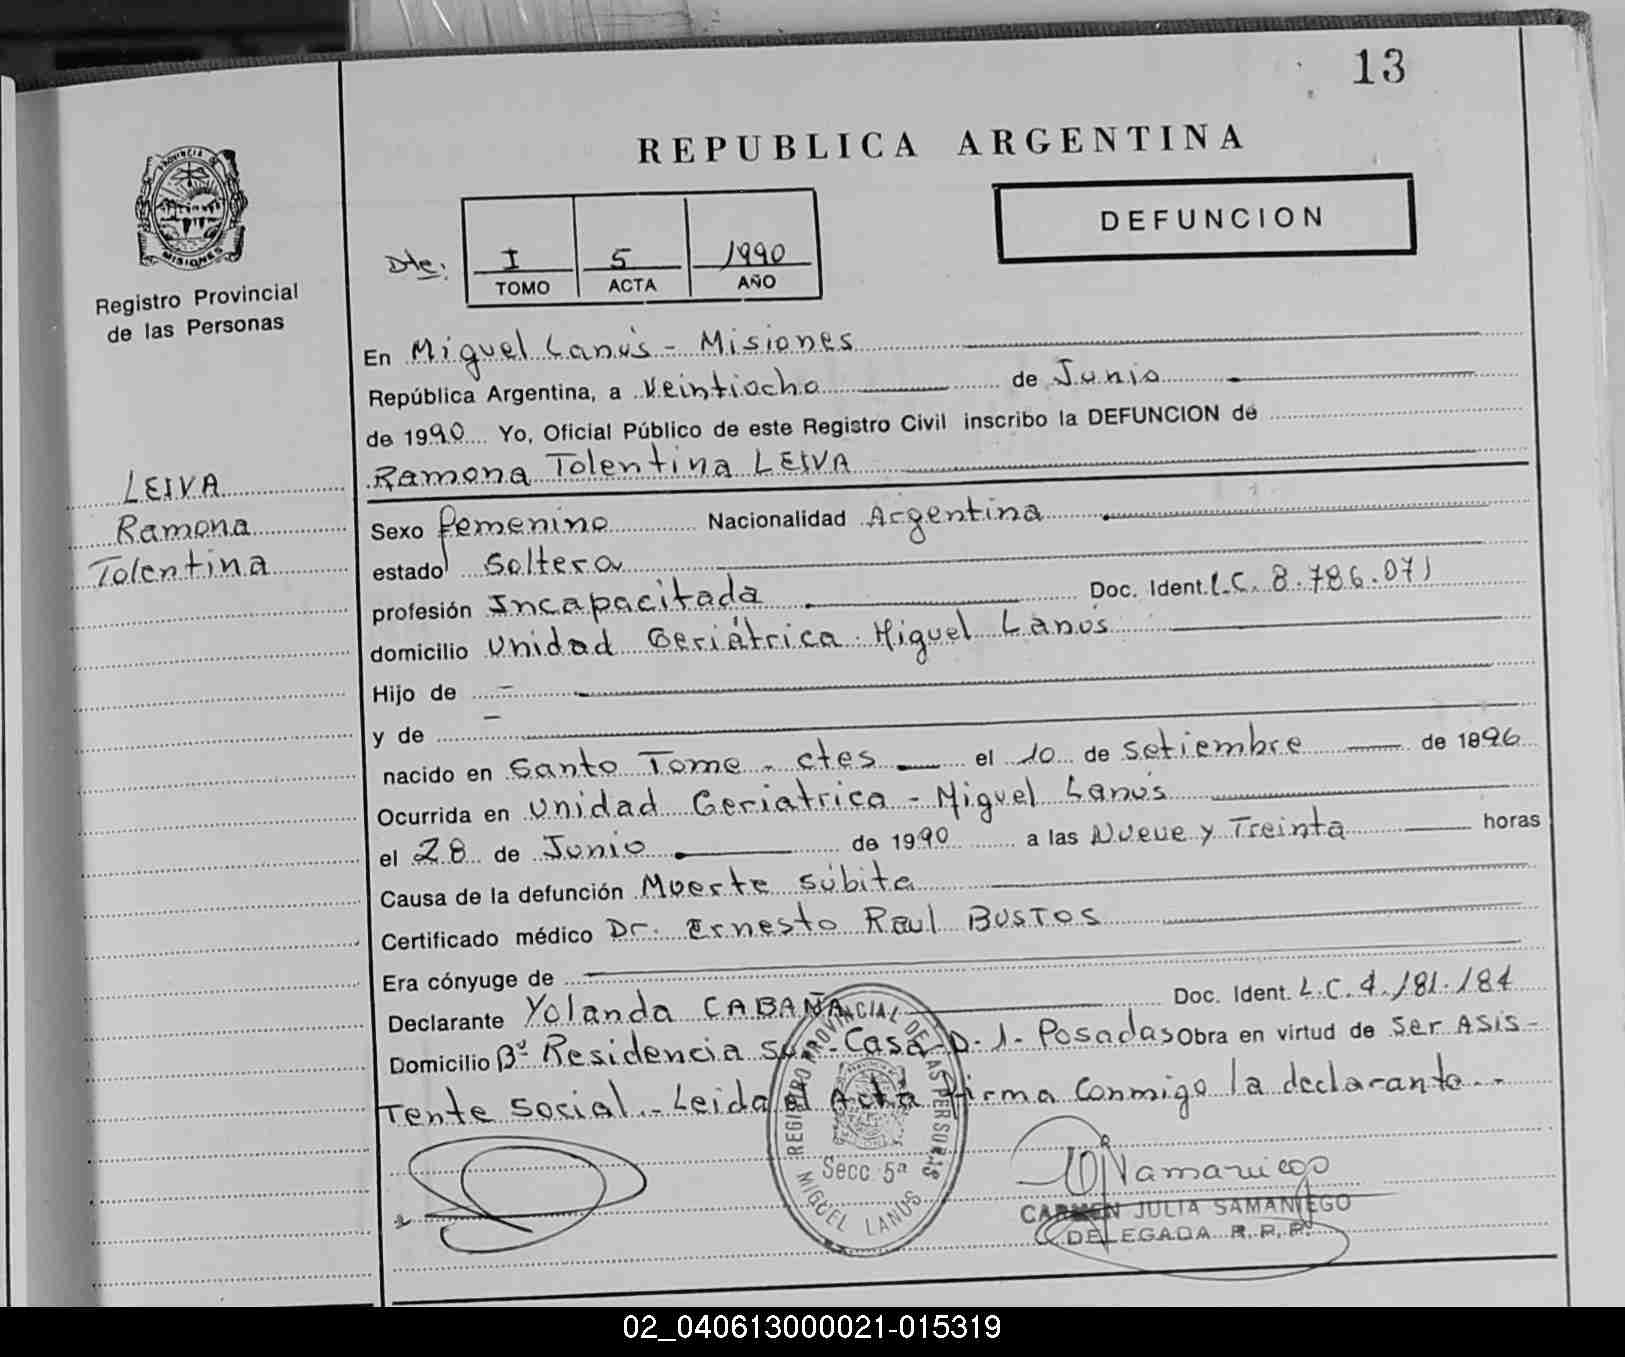 13
REPUBLICA ARGENTINA
PROVINCIA DE
MISIONES
Registro Provincial
de las Personas
DEFUNCION
Dte: I 5 1990
TOMO ACTA AÑO
En Miguel Lanús - Misiones
República Argentina, a Veintiocho de Junio
de 1990 Yo, Oficial Público de este Registro Civil inscribo la DEFUNCION de
Ramona Tolentina LEIVA
LEIVA
Ramona
Tolentina
Sexo femenino Nacionalidad Argentina
estado Soltera
profesión Incapacitada Doc. Ident. L.C. 8.786.071
domicilio Unidad Geriátrica Miguel Lanús
Hijo de -
y de -
nacido en Santo Tome - ctes el 10 de Setiembre de 1896
Ocurrida en Unidad Geriatrica - Miguel Lanús
el 28 de Junio de 1990 a las Nueve y Treinta horas
Causa de la defunción Muerte súbita
Certificado médico Dr. Ernesto Raul BUSTOS
Era cónyuge de
Declarante Yolanda CABAÑA Doc. Ident. L.C. 4.181.184
Domicilio Bº Residencia Sur - Casa D.1- Posadas Obra en virtud de Ser ASIS-
Tente Social.- Leida el Acta firma conmigo la declarante.-
REGISTRO PROVINCIAL DE LAS PERSONAS
Secc. 5ª
MIGUEL LANUS
CARMEN JULIA SAMANIEGO
DELEGADA R.P.P.
02_040613000021-015319